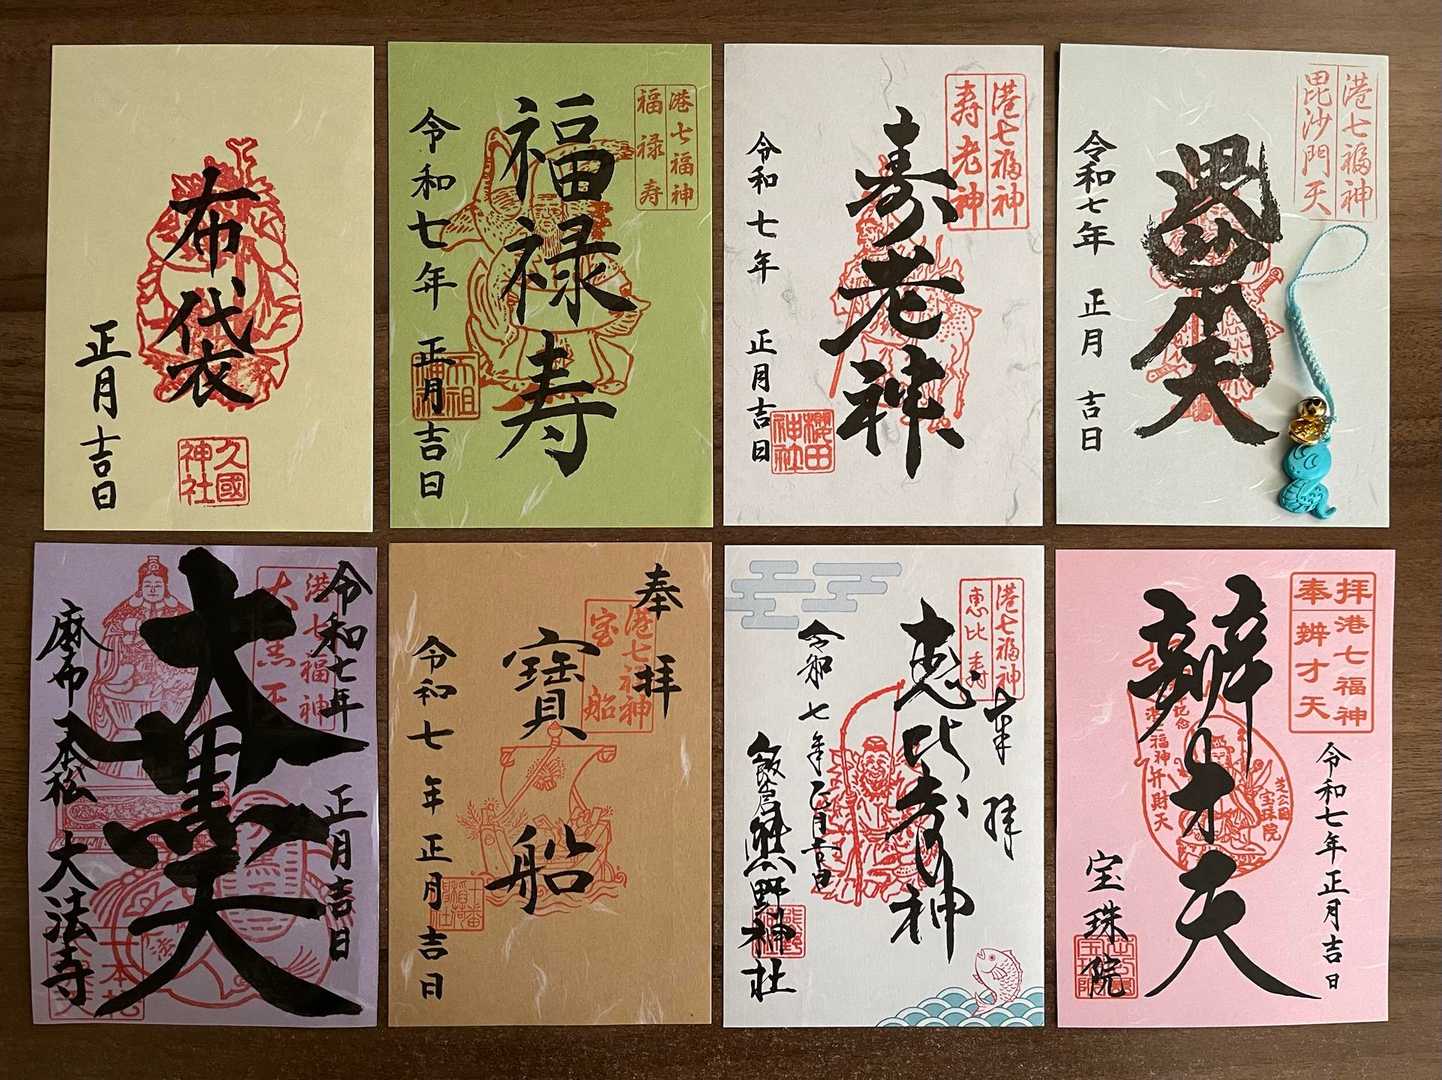 布袋
正月吉日
久國
神社
港七福神
福禄寿
福禄寿
令和七年 正月吉日
港七福神
寿老神
寿老神
令和七年 正月吉日
櫻田
神社
港七福神
毘沙門天
毘沙門天
令和七年 正月 吉日
令和七年 正月吉日
港七福神
大黒天
大黒天
麻布 一本松 大法寺
奉拝
港七福神
宝船
寶船
令和七年正月吉日
港七福神
恵比寿
奉拝
恵比寿神
令和七年正月吉日
飯倉熊野神社
熊野
拝港七福神
奉辨才天
令和七年正月吉日
辨才天
港七福神弁財天
芝公園
宝珠院
宝珠院